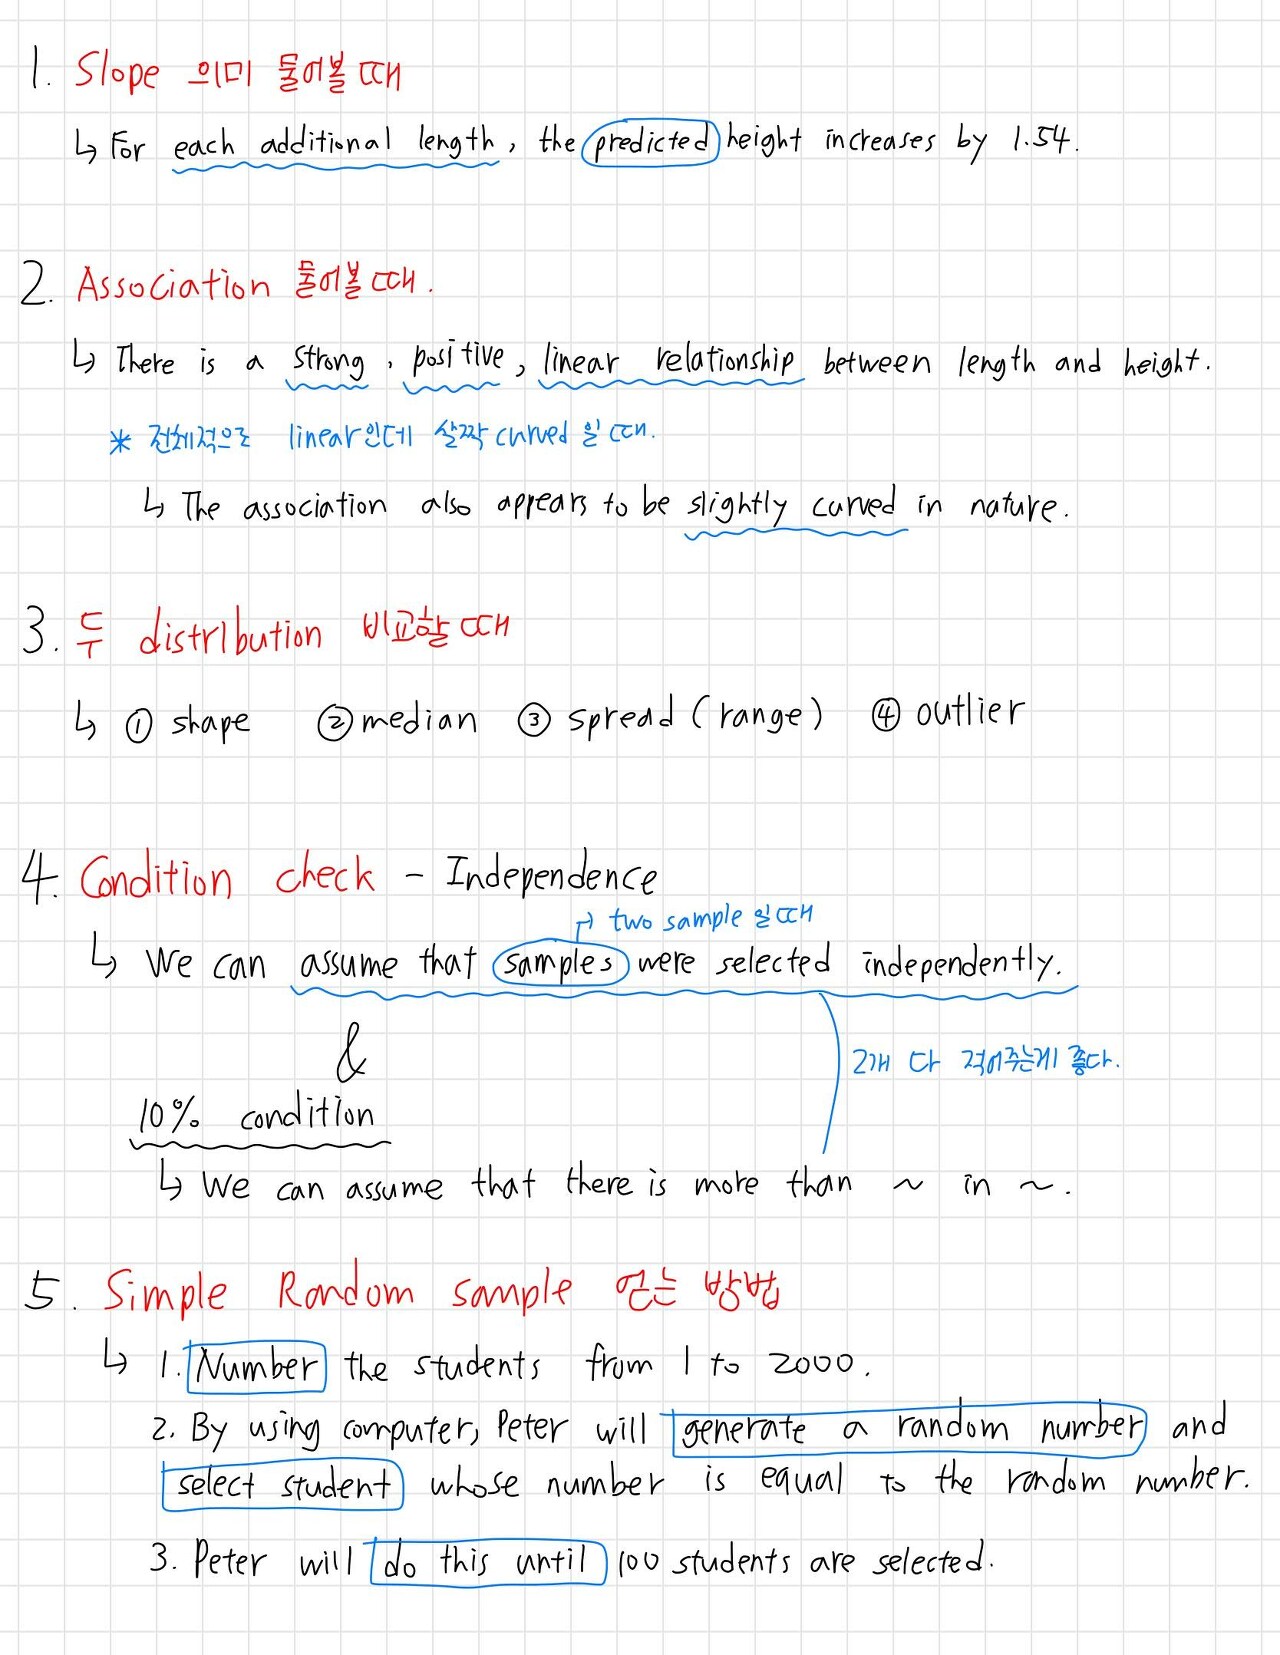 1. Slope 의미 물어볼 때
↳ For each additional length, the predicted height increases by 1.54.
2. Association 물어볼 때.
↳ There is a strong, positive, linear relationship between length and height.
* 전체적으로 linear인데 살짝 curved 일 때.
↳ The association also appears to be slightly curved in nature.
3. 두 distribution 비교할 때
↳ ① shape ② median ③ spread (range) ④ outlier
4. Condition check - Independence
↱ two sample 일 때
↳ We can assume that samples were selected independently.
&
2개 다 적어주는게 좋다.
10% condition
↳ We can assume that there is more than ~ in ~.
5. Simple Random sample 얻는 방법
↳ 1. Number the students from 1 to 2000.
2. By using computer, Peter will generate a random number and
select student whose number is equal to the random number.
3. Peter will do this until 100 students are selected.